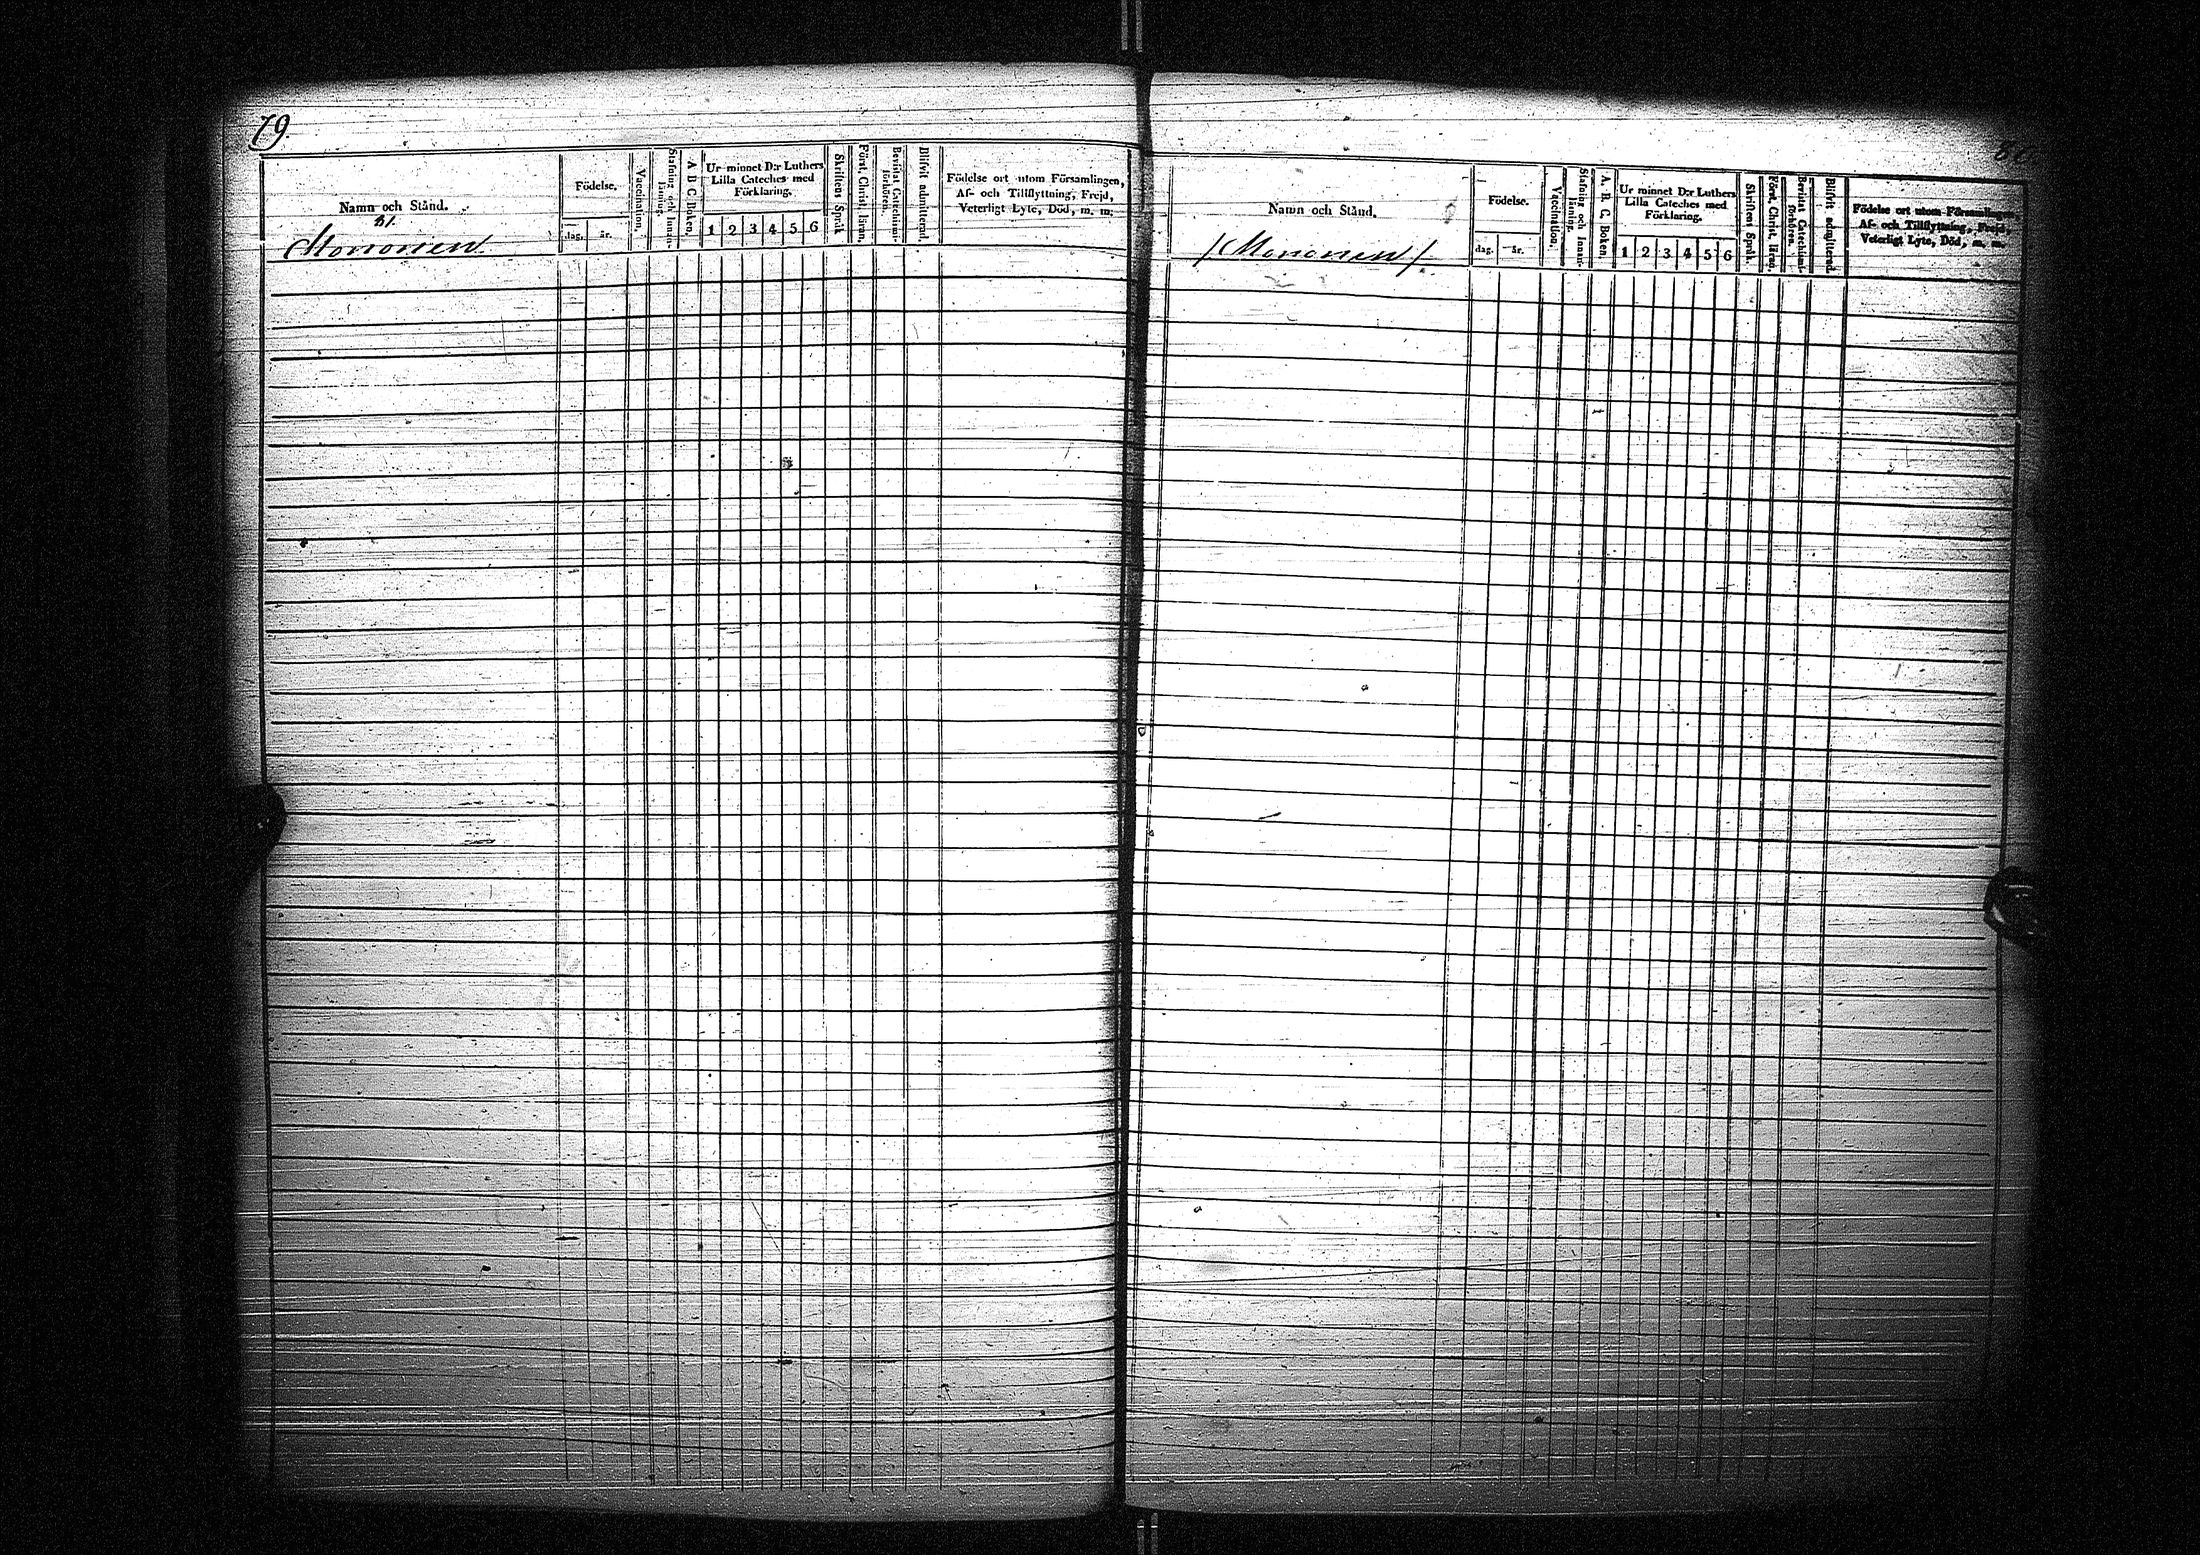 79
Namn och Stånd.
81.
Mononen
Födelse.
dag. år.
Vaccination.
Stafning och Innanläsning.
A B C Boken.
Ur minnet D:r Luthers
Lilla Cateches med
Förklaring.
1 2 3 4 5 6
Skriftens Språk
Först. Christ. läran.
Bevistat Catechismiförhören.
Blifvit admitterad.
Födelse ort utom Församlingen,
Af- och Tillflyttning, Frejd,
Veterligt Lyte, Död, m. m.
80
Namn och Stånd.
/Mononen/
Födelse.
dag. år.
Vaccination.
Stafning och Innanläsning.
A. B. C. Boken.
Ur minnet D:r Luthers
Lilla Cateches med
Förklaring.
1 2 3 4 5 6
Skriftens Språk
Först. Christ. läran.
Bevistat Catechismiförhören.
Blifvit admitterad.
Födelse ort utom Församlingen,
Af- och Tillflyttning, Frejd,
Veterligt Lyte, Död, m. m.